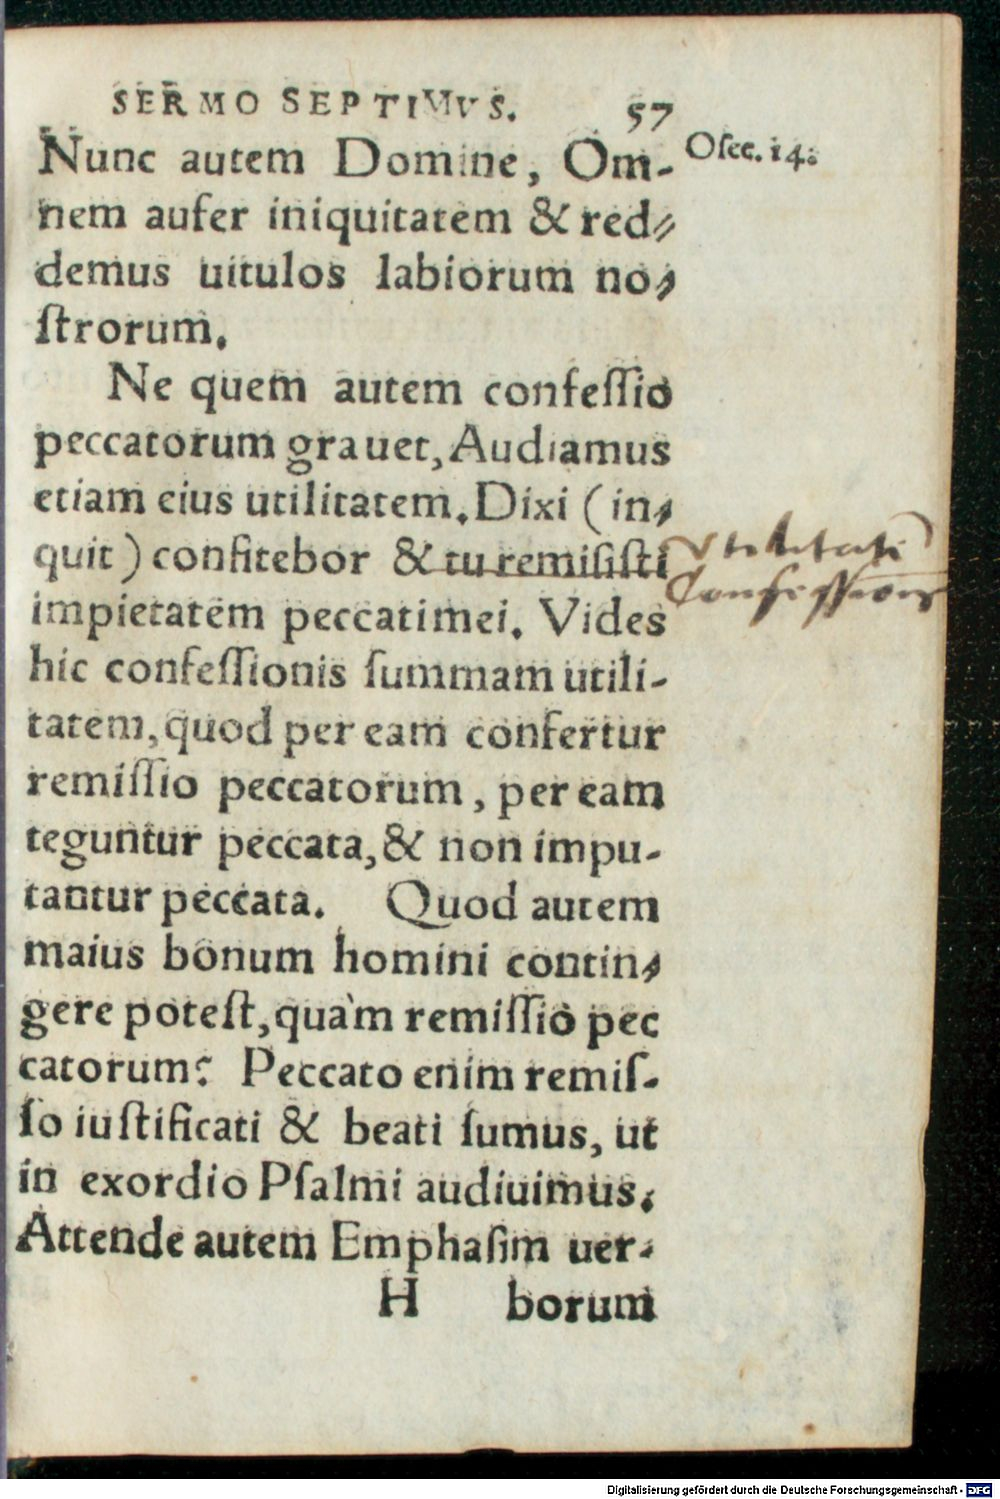 SERMO SEPTIMVS. 57
Nunc autem Domine, Om- Osee. 14.
nem aufer iniquitatem & red⸗
demus uitulos labiorum no⸗
ſtrorum.
Ne quem autem confeſſio
peccatorum grauet, Audiamus
etiam eius utilitatem. Dixi (in⸗
quit) confitebor & tu remiſiſti
impietatem peccati mei. Vides
hic confeſſionis ſummam utili-
tatem, quod per eam confertur
remiſſio peccatorum, per eam
teguntur peccata, & non impu-
tantur peccata. Quod autem
maius bonum homini contin⸗
gere poteſt, quàm remiſſio pec
catorum? Peccato enim remiſ-
ſo iuſtificati & beati ſumus, ut
in exordio Pſalmi audiuimus.
Attende autem Emphaſim uer-
H borum
Vtilitati
Confeſſionis
Digitalisierung gefördert durch die Deutsche Forschungsgemeinschaft - DFG